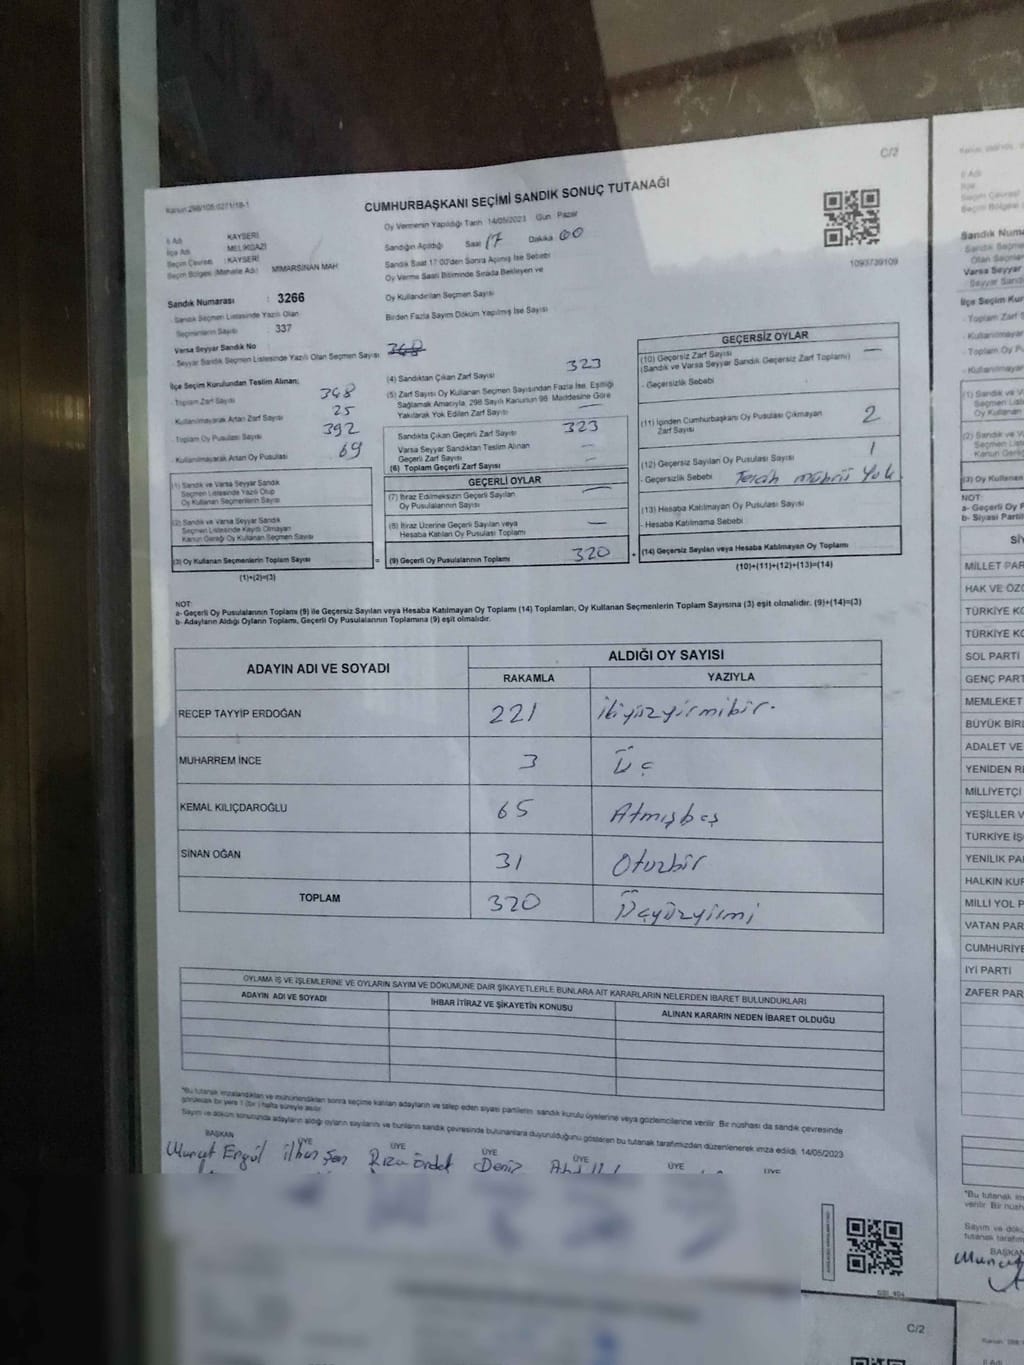 C/2
Kanun:298/105:0271/18-1
CUMHURBAŞKANI SEÇİMİ SANDIK SONUÇ TUTANAĞI
Oy Vermenin Yapıldığı Tarih 14/05/2023 Gün Pazar
İl Adı KAYSERİ
İlçe Adı MELİKGAZİ
Seçim Çevresi : KAYSERİ
Seçim Bölgesi (Mahalle Adı) MİMARSİNAN MAH
Sandığın Açıldığı Saat 17 Dakika 00
Sandık Saat 17:00'den Sonra Açılmış İse Sebebi
Oy Verme Saati Bitiminde Sırada Bekleyen ve
Oy Kullandırılan Seçmen Sayısı
Birden Fazla Sayım Döküm Yapılmış İse Sayısı
1093739109
Sandık Numarası : 3266
Sandık Seçmen Listesinde Yazılı Olan
Seçmenlerin Sayısı : 337
Varsa Seyyar Sandık No
- Seyyar Sandık Seçmen Listesinde Yazılı Olan Seçmen Sayısı 368
İlçe Seçim Kurulundan Teslim Alınan;
- Toplam Zarf Sayısı 348
- Kullanılmayarak Artan Zarf Sayısı 25
- Toplam Oy Pusulası Sayısı 392
- Kullanılmayarak Artan Oy Pusulası 69
(1) Sandık ve Varsa Seyyar Sandık
Seçmen Listesinde Yazılı Olup
Oy Kullanan Seçmenlerin Sayısı
(2) Sandık ve Varsa Seyyar Sandık
Seçmen Listesinde Kaydı Olmayan
Kanun Gereği Oy Kullanan Seçmen Sayısı
(3) Oy Kullanan Seçmenlerin Toplam Sayısı
(1)+(2)=(3)
(4) Sandıktan Çıkan Zarf Sayısı 323
(5) Zarf Sayısı Oy Kullanan Seçmen Sayısından Fazla İse, Eşitliği
Sağlamak Amacıyla, 298 Sayılı Kanunun 98. Maddesine Göre
Yakılarak Yok Edilen Zarf Sayısı —
Sandıkta Çıkan Geçerli Zarf Sayısı 323
Varsa Seyyar Sandıktan Teslim Alınan
Geçerli Zarf Sayısı —
(6) Toplam Geçerli Zarf Sayısı —
GEÇERLİ OYLAR
(7) İtiraz Edilmeksizin Geçerli Sayılan
Oy Pusulalarının Sayısı —
(8) İtiraz Üzerine Geçerli Sayılan veya
Hesaba Katılan Oy Pusulası Toplamı —
= (9) Geçerli Oy Pusulalarının Toplamı 320
GEÇERSİZ OYLAR
(10) Geçersiz Zarf Sayısı —
(Sandık ve Varsa Seyyar Sandık Geçersiz Zarf Toplamı)
- Geçersizlik Sebebi
(11) İçinden Cumhurbaşkanı Oy Pusulası Çıkmayan
Zarf Sayısı 2
(12) Geçersiz Sayılan Oy Pusulası Sayısı 1
- Geçersizlik Sebebi Tercih mührü Yok
(13) Hesaba Katılmayan Oy Pusulası Sayısı
Hesaba Katılmama Sebebi
+ (14) Geçersiz Sayılan veya Hesaba Katılmayan Oy Toplamı
(10)+(11)+(12)+(13)=(14)
NOT:
a- Geçerli Oy Pusulalarının Toplamı (9) ile Geçersiz Sayılan veya Hesaba Katılmayan Oy Toplamı (14) Toplamları, Oy Kullanan Seçmenlerin Toplam Sayısına (3) eşit olmalıdır. (9)+(14)=(3)
b- Adayların Aldığı Oyların Toplamı, Geçerli Oy Pusulalarının Toplamına (9) eşit olmalıdır.
ADAYIN ADI VE SOYADI ALDIĞI OY SAYISI
RAKAMLA YAZIYLA
RECEP TAYYİP ERDOĞAN 221 ikiyüzyirmibir.
MUHARREM İNCE 3 Üç
KEMAL KILIÇDAROĞLU 65 Atmışbeş
SİNAN OĞAN 31 Otuzbir
TOPLAM 320 Üçyüzyirmi
OYLAMA İŞ VE İŞLEMLERİNE VE OYLARIN SAYIM VE DÖKÜMÜNE DAİR ŞİKAYETLERLE BUNLARA AİT KARARLARIN NELERDEN İBARET BULUNDUKLARI
ADAYIN ADI VE SOYADI İHBAR İTİRAZ VE ŞİKAYETİN KONUSU ALINAN KARARIN NEDEN İBARET OLDUĞU
*Bu tutanak imzalandıktan ve mühürlendikten sonra seçime katılan adayların ve talep eden siyasi partilerin sandık kurulu üyelerine veya gözlemcilerine verilir. Bir nüshası da sandık çevresinde
görülecek bir yere 1 (bir) hafta süreyle asılır.
Sayım ve döküm sonucunda adayların aldığı oyların sayılarını ve bunların sandık çevresinde bulunanlara duyurulduğunu gösteren bu tutanak tarafımızdan düzenlenerek imza edildi. 14/05/2023
BAŞKAN ÜYE ÜYE ÜYE ÜYE ÜYE ÜYE
Murat Ergül ilhan Şen Rıza Deniz
C/2
İl Adı
İlçe
Seçim Çevresi
Seçim Bölgesi
Sandık Numa
Varsa Seyyar
İlçe Seçim Kur
- Toplam Zarf S
- Kullanılmayar
- Toplam Oy P
- Kullanılmayar
(1) Sandık ve V
Seçmen List
Oy Kullanan
(2) Sandık ve V
Seçmen List
Kanun Gereğ
(3) Oy Kullanan
NOT:
a- Geçerli Oy P
b- Siyasi Partil
Sİ
MİLLET PAR
HAK VE ÖZG
TÜRKİYE KO
TÜRKİYE KO
SOL PARTİ
GENÇ PART
MEMLEKET
BÜYÜK BİRL
ADALET VE
YENİDEN RE
MİLLİYETÇİ
YEŞİLLER V
TÜRKİYE İŞ
YENİLİK PA
HALKIN KUR
MİLLİ YOL P
VATAN PAR
CUMHURİYE
İYİ PARTİ
ZAFER PAR
*Bu tutanak im
verilir. Bir nüsh
Sayım ve dökü
tutanak tarafım
BAŞKAN
Murat